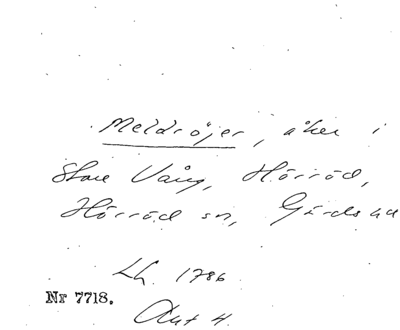 Meldrøjer, åker i
Store Vång, Hörröd,
Hörröd sn, Gärds hd
Lh. 1786
Nr 7718.
Akt 4